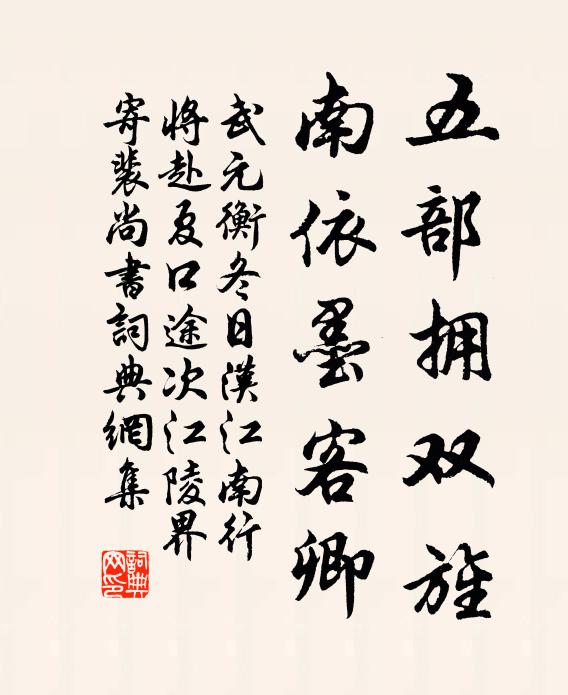 五部拥双旌
南依墨客卿
武元衡冬日漢江南行
将赴夏口途次江陵界
寄裴尚書詞典網集
詞典
网印